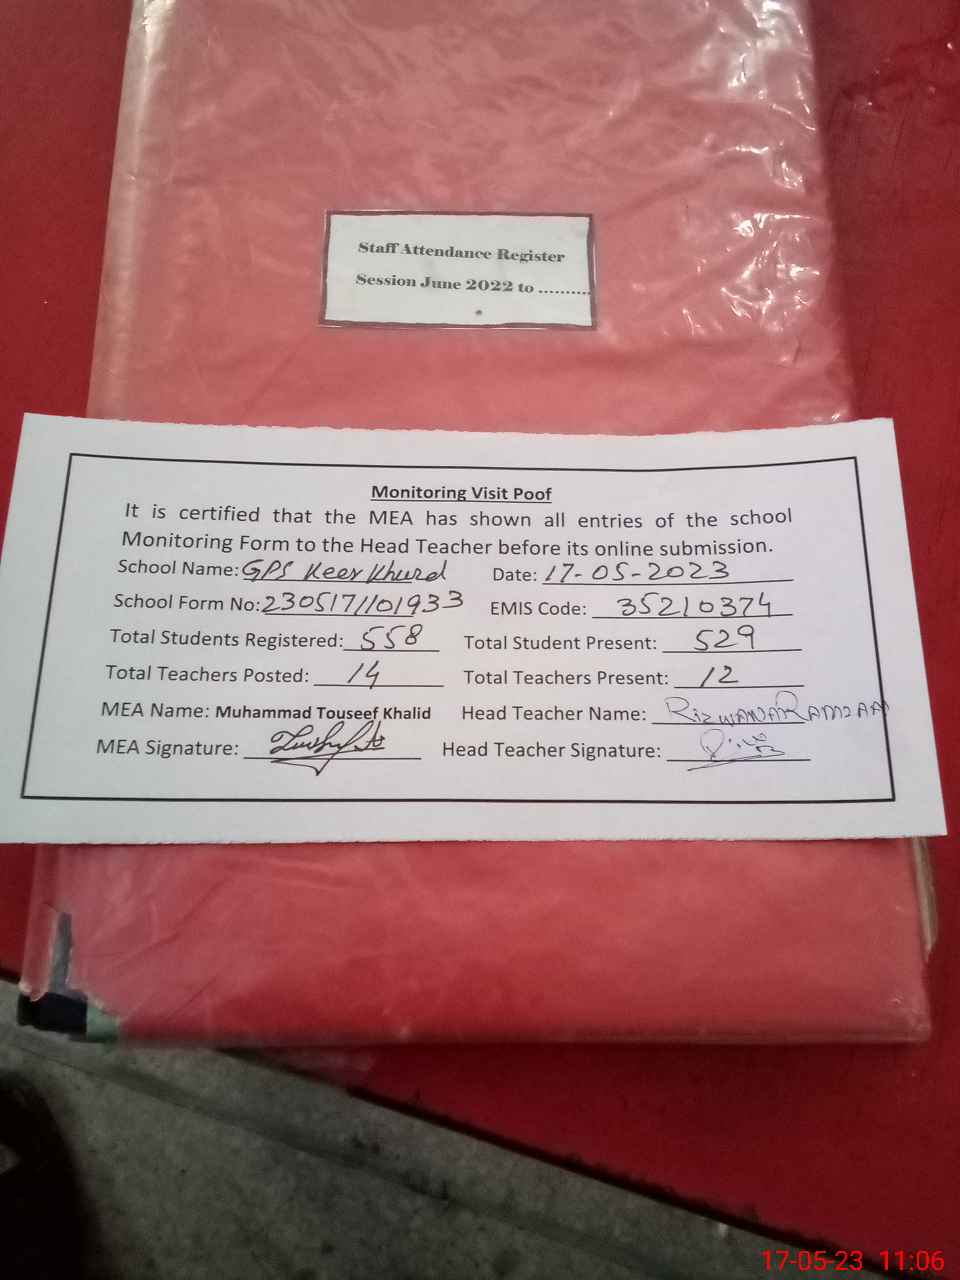 Staff Attendance Register
Session June 2022 to ..........
Monitoring Visit Poof
It is certified that the MEA has shown all entries of the school
Monitoring Form to the Head Teacher before its online submission.
School Name: GPS Keer Khurd Date: 17-05-2023
School Form No: 2305171101933 EMIS Code: 35210374
Total Students Registered: 558 Total Student Present: 529
Total Teachers Posted: 14 Total Teachers Present: 12
MEA Name: Muhammad Touseef Khalid Head Teacher Name: RIZWANA RAMZAN
MEA Signature: Head Teacher Signature:
17-05-23 11:06